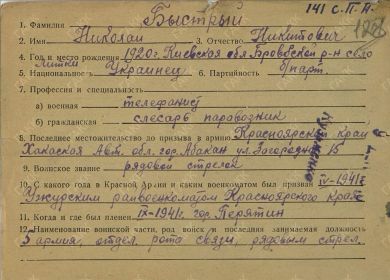 141 С.П.П.
1. Фамилия Быстрый
2. Имя Николай 3. Отчество Никитович
4. Год и место рождения 1920г. Киевская обл. Бровской р-н село
Литки
5. Национальность Украинец 6. Партийность б/парт.
7. Профессия и специальность
а) военная телефанист
б) гражданская слесарь паровозник
8. Последнее местожительство до призыва в армию Красноярский край
Хакаская Авт. обл. гор. Абакан ул. Загородная 15
9. Воинское звание рядовой стрелок
10. С какого года в Красной Армии и каким военкоматом был призван IV-1941г.
Ужурским райвоенкоматом Красноярского края
11. Когда и где был пленен IX-1941г. гор. Перятин
12. Наименование воинской части, род войск и последняя занимаемая должность
5 армия, отдел. рота связи, рядовым стрел.